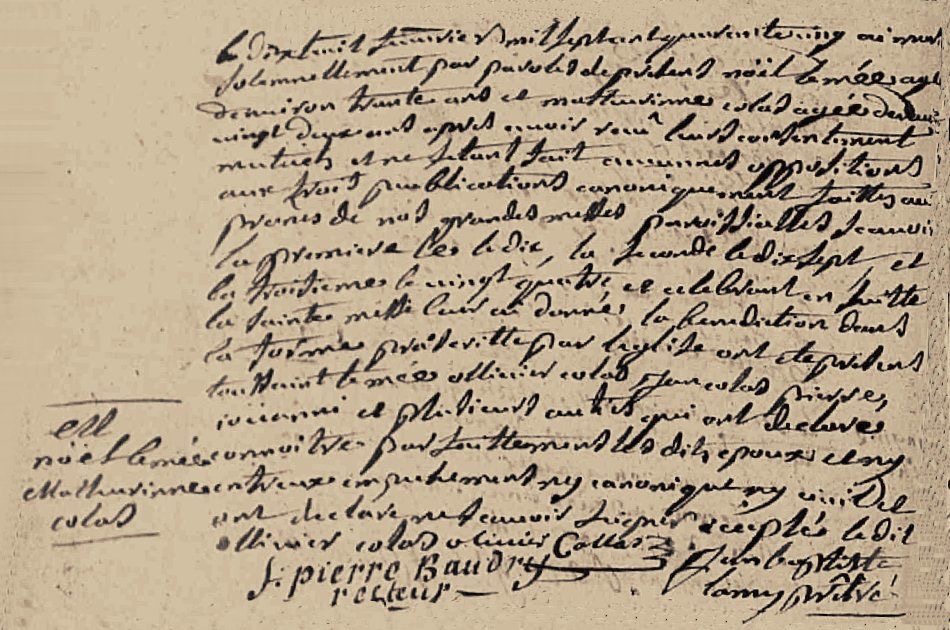 le dix huit feuvrier mil sept cent quarente cinq ai marié
solemnellement par paroles de présent noël lemée agé
denviron trante ans et mathurinne colas agée denviron
vingt deux ans apres avoir recu leurs consentement
mutuels et ne sétant fait aucunnes oppositions
aux trois publications canoniquement faittes au
prones de nos grandes messes paroissialles scavoir
la premiere le ledix, la seconde le dix sept, et
la troisieme le vingt quatre et celebrant en suitte
la sainte messe leur ai donné la benediction dans
la forme préscritte par leglise ont éte présens
toussaint lemée ollivier colas jean colas pierre
jouanni et plusieurs autres qui ont declaré
connoitre parfaittement les dits epoux et ny
entreux empechement ny canonique ny civil et
ont declaré ne scavoir signer éxcepté ledit
ollivier colas olivier Collas
f: pierre Baudry Jean baptiste
recteur lamy prêtre
ell
noël lemée
Mathurinne
colas